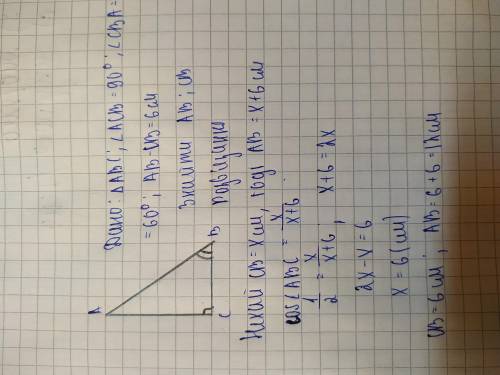 Дано: △ABC; ∠ACB=90°; ∠CBA=
=60°; AB-CB=6см
Знайти AB; CB
A
B
C
Нехай CB=xсм, тоді AB=x+6см
cos∠ABC = x/(x+6)
1/2 = x/(x+6), x+6=2x
2x-x=6
x=6(см)
CB=6см; AB=6+6=12см